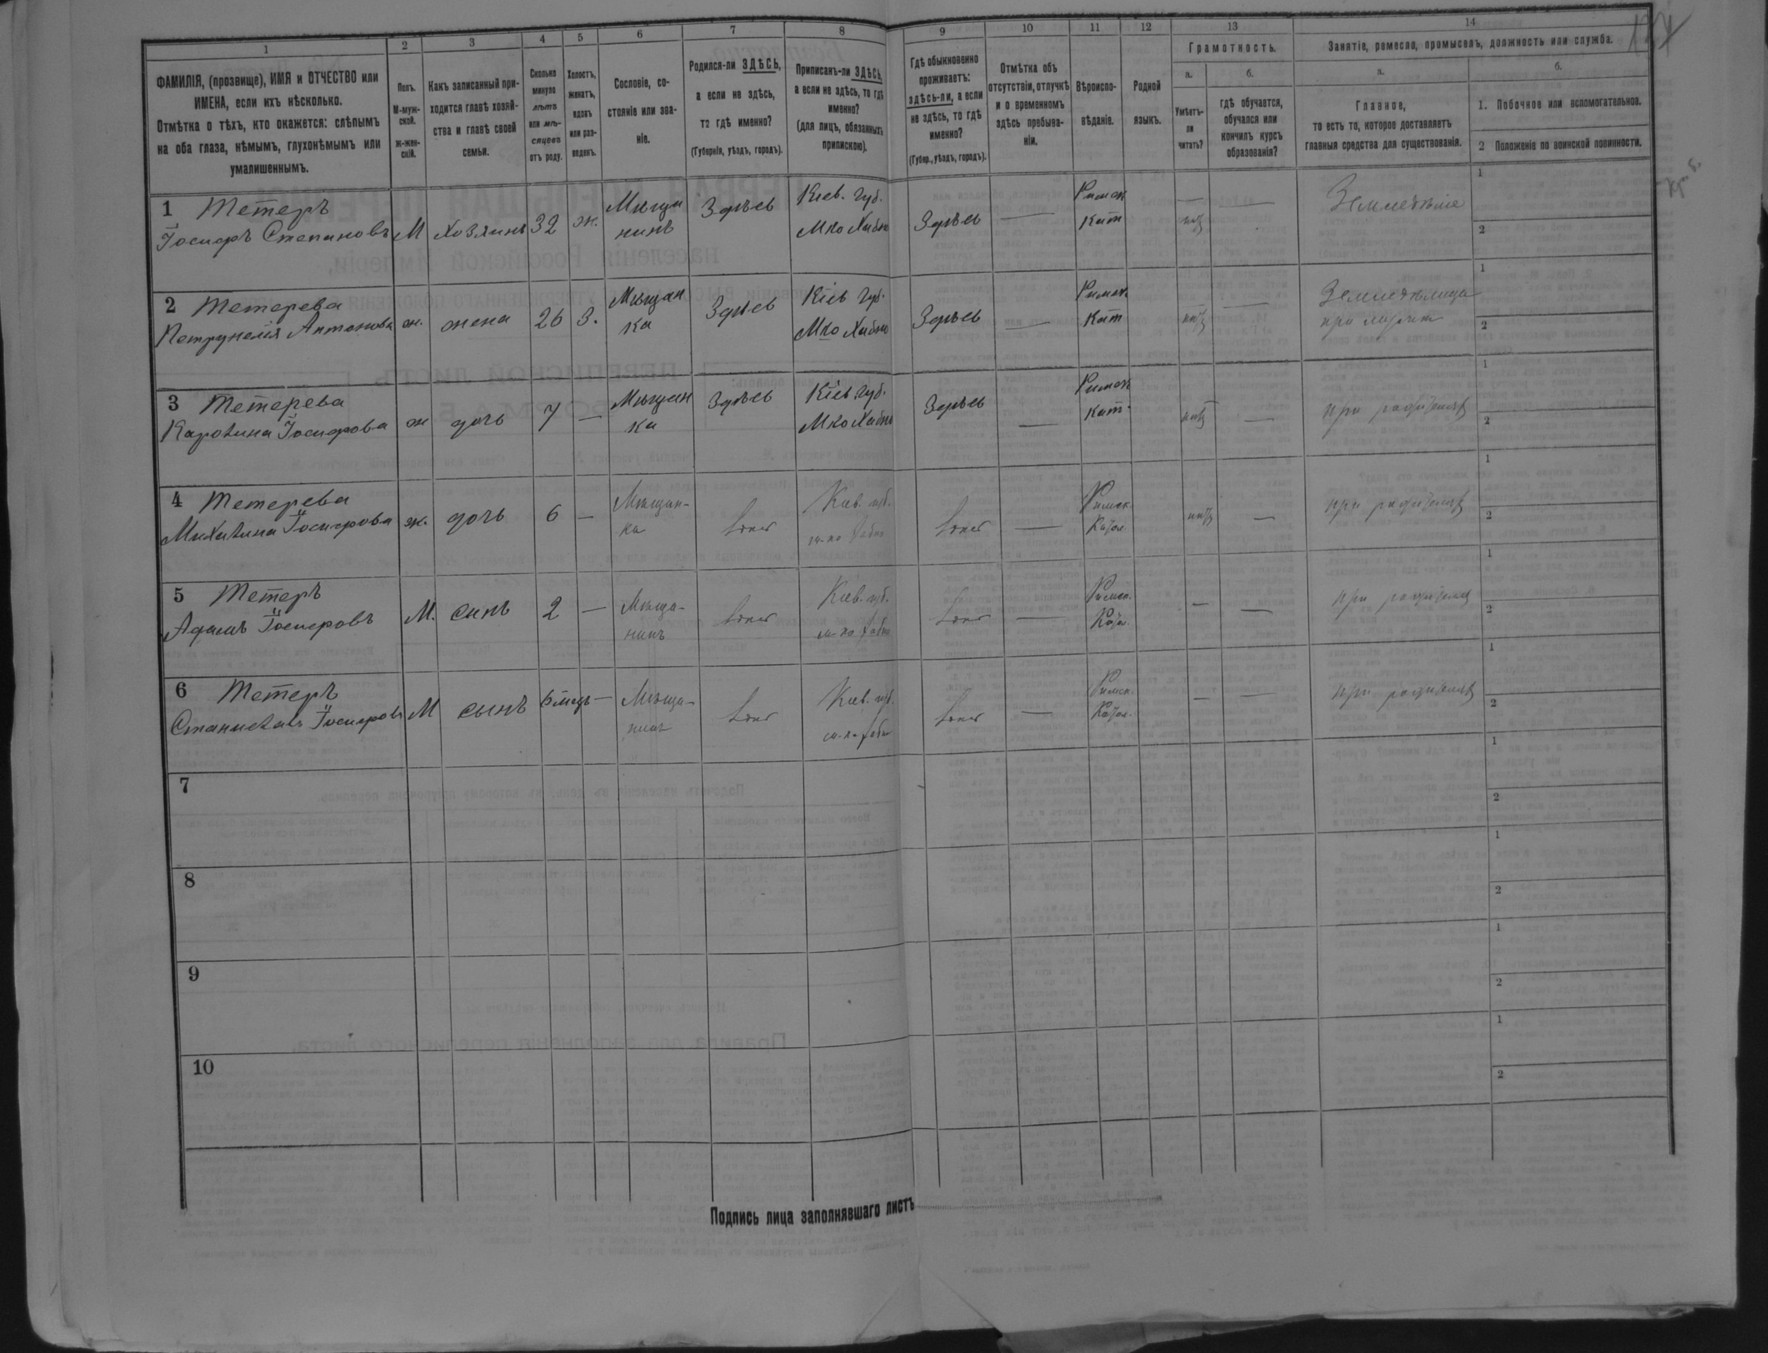 1
2
3
4
5
6
7
8
9
10
11
12
13
14
ФАМИЛІЯ, (прозвище), ИМЯ и ОТЧЕСТВО или
ИМЕНА, если ихъ нѣсколько.
Отмѣтка о тѣхъ, кто окажется: слѣпымъ
на оба глаза, нѣмымъ, глухонѣмымъ или
умалишеннымъ.
Полъ.
М-муж-
ской.
ж-жен-
скій.
Какъ записанный при-
ходится главѣ хозяй-
ства и главѣ своей
семьи.
Сколько
минуло
лѣтъ
или мѣ-
сяцевъ
отъ роду.
Холостъ,
женатъ,
вдовъ
или раз-
веденъ.
Сословіе, со-
стояніе или зва-
ніе.
Родился-ли ЗДѢСЬ,
а если не здѣсь,
то гдѣ именно?
(Губернія, уѣздъ, городъ).
Приписанъ-ли ЗДѢСЬ,
а если не здѣсь, то гдѣ
именно?
(для лицъ, обязанныхъ
припискою).
Гдѣ обыкновенно
проживаетъ:
здѣсь-ли, а если
не здѣсь, то гдѣ
именно?
(Губер., уѣздъ, городъ).
Отмѣтка объ
отсутствіи, отлучкѣ
и о временномъ
здѣсь пребыва-
ніи.
Вѣроиспо-
вѣданіе.
Родной
языкъ.
Грамотность.
а.
Умѣетъ-
ли
читать?
б.
гдѣ обучается,
обучался или
кончилъ курсъ
образованія?
Занятіе, ремесло, промыселъ, должность или служба.
а.
Главное,
то есть то, которое доставляетъ
главныя средства для существованія.
б.
1. Побочное или вспомогательное.
2 Положеніе по воинской повинности.
1 Тетеръ
Іосифъ Степановъ М Хозяинъ 32 ж. Мѣща
нинъ Здѣсь Кіев. Губ.
Мко Хабно Здѣсь — Римск
Кат — нѣтъ — Земледѣліе
1
2
2 Тетерева
Петрунелія Антонова ж. жена 26 З. Мѣщан
ка Здѣсь Кіев Губ.
Мко Хабно Здѣсь — Римск
Кат нѣтъ — Земледѣлица
при мужѣ
1
2
3 Тетерева
Каролина Іосифова ж дочь 7 — Мѣщан
ка Здѣсь Кіев Губ.
Мко Хабно Здѣсь — Римск
Кат. нѣтъ — при родителяхъ
1
2
4 Тетерева
Михалина Іосифова ж. дочь 6 — Мѣщан-
ка Кіев. губ.
м-ко Хабно — Римск.
Катол нѣтъ — при родителяхъ
1
2
5 Тетеръ
Адамъ Іосифовъ М. сынъ 2 — Мѣща-
нинъ Кіев. губ.
м-ко Хабно — Римск.
Катол — — при родителяхъ
1
2
6 Тетеръ
Станиславъ Іосифовъ М сынъ 6 мѣсц — Мѣща-
нинъ Кіев. губ.
м-ко Хабно — Римск.
Катол. — — при родителяхъ
1
2
7
1
2
8
1
2
9
1
2
10
1
2
Подпись лица заполнявшаго листъ